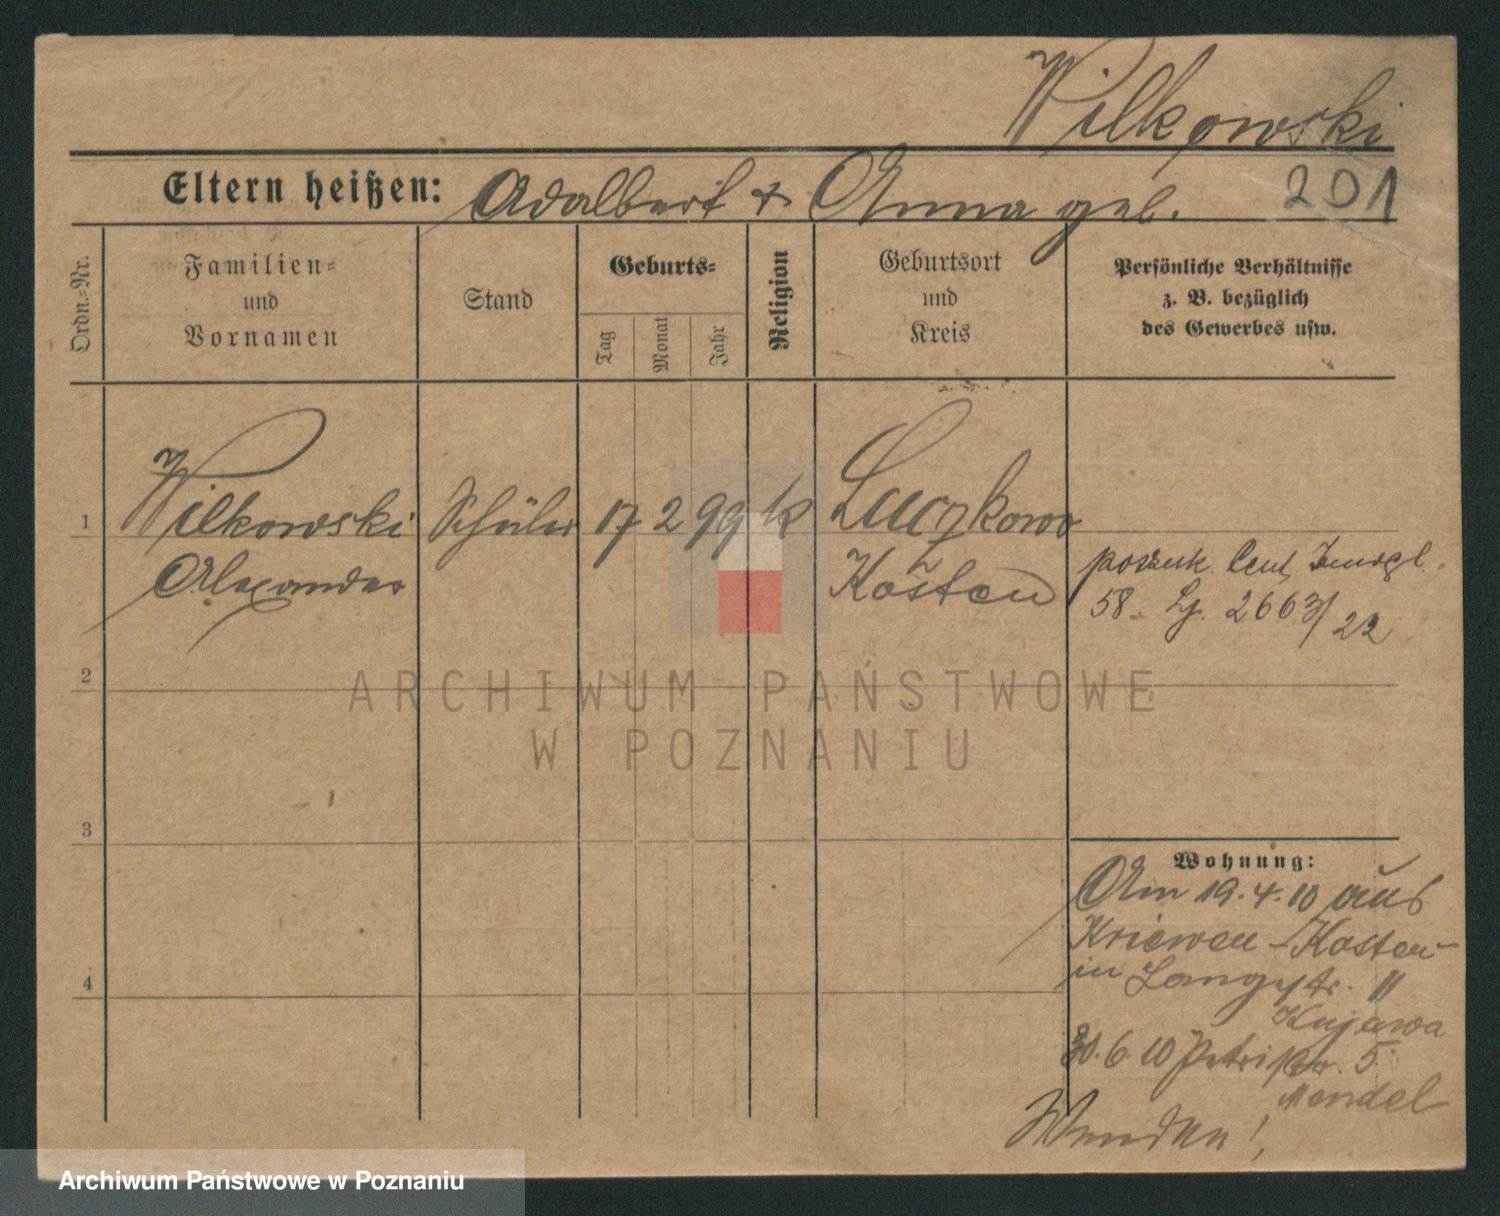 Wilkowski
201
Eltern heißen: Adalbert & Anna geb.
Ordn.-Nr.
Familien- und Vornamen
Stand
Geburts-
Tag
Monat
Jahr
Religion
Geburtsort und Kreis
Persönliche Verhältnisse
z. B. bezüglich
des Gewerbes usw.
1 Wilkowski Schüler 17 2 99 k Luczkowo
Alexander Kosten
poszuk. Cent.
58. Lj. 2663/22
2
ARCHIWUM PAŃSTWOWE
W POZNANIU
3
Wohnung:
Am 19.4.10 aus
Kriewen - Kosten
4
in Langestr. 11
Kujawa
30.6.10 Petristr. 5
Mendel
Wenden!
Archiwum Państwowe w Poznaniu